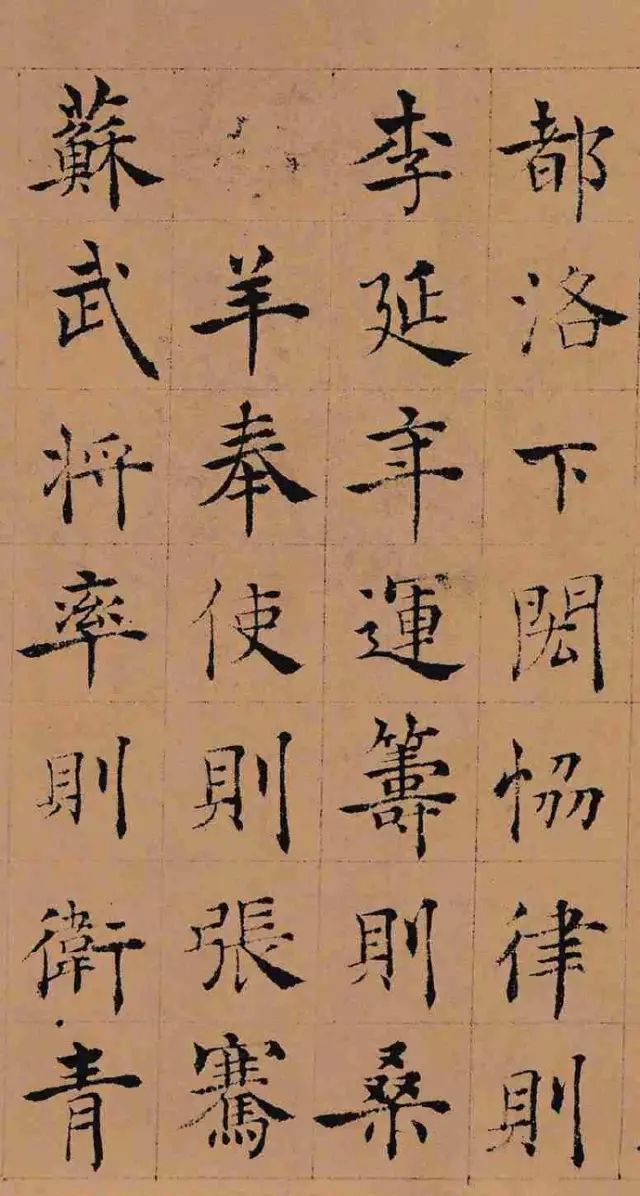 都洛下閎恊律則
李延年運籌則桑
羊奉使則張騫
蘇武將率則衛青